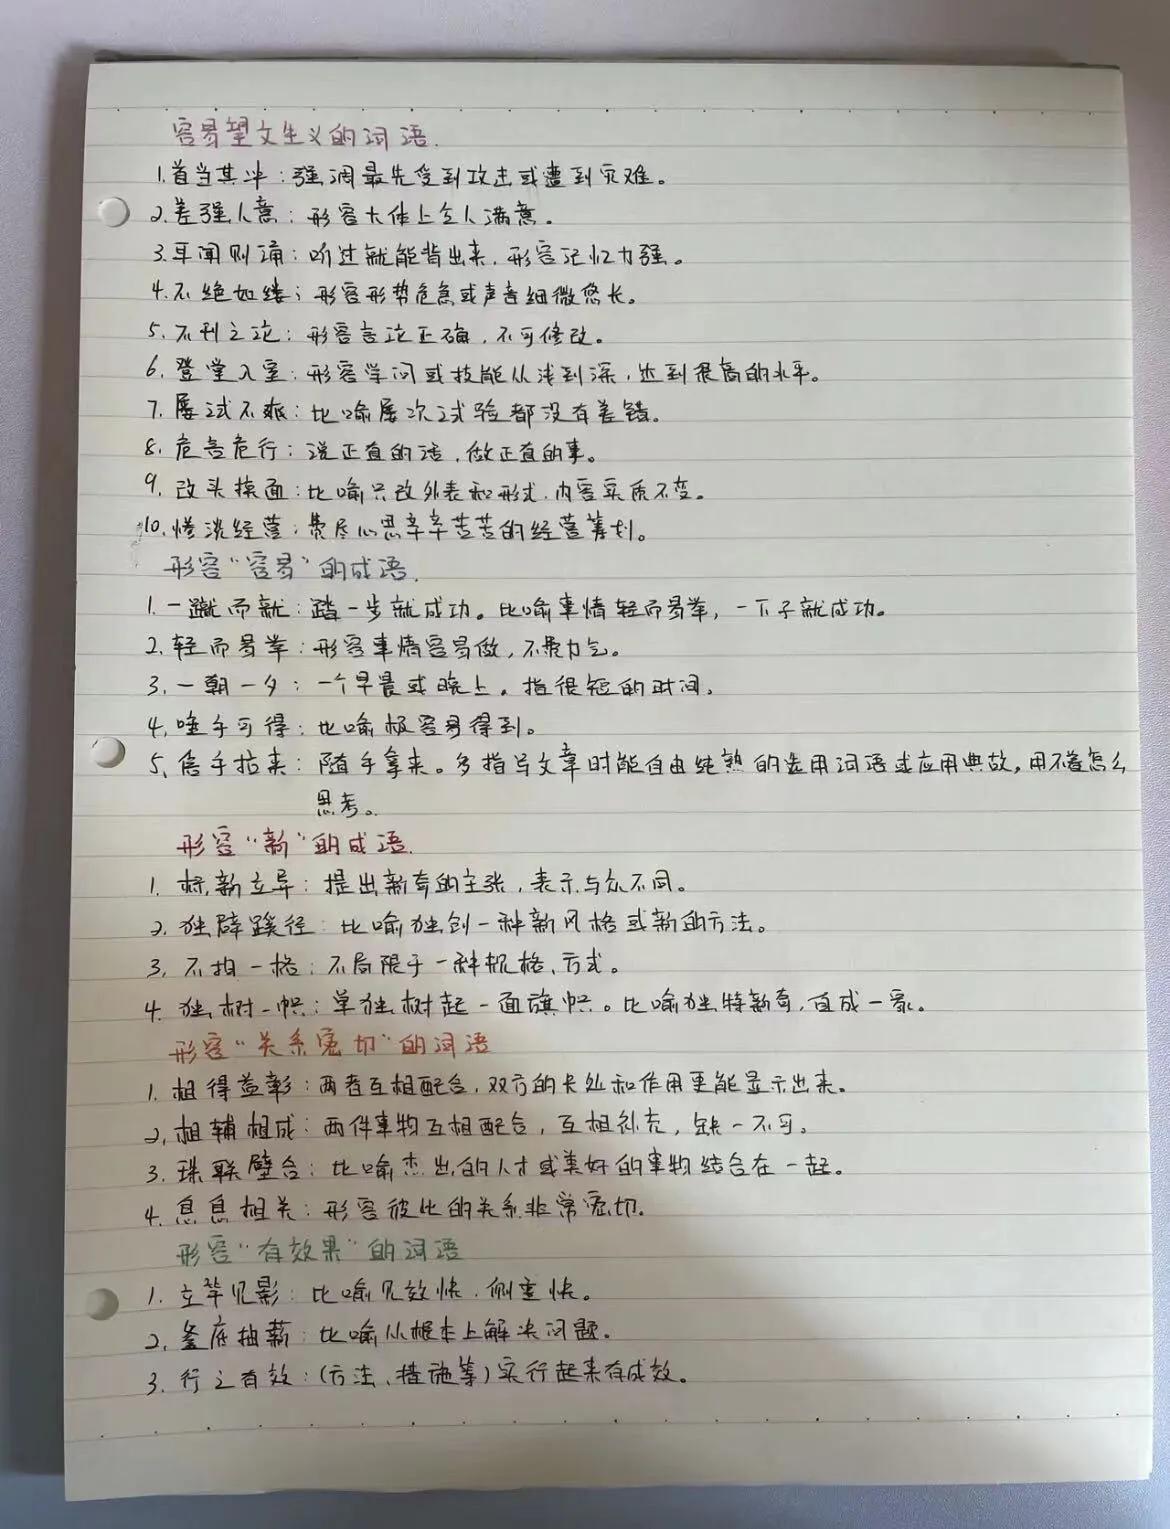 容易望文生义的词语.
1.首当其冲：强调最先受到攻击或遭到灾难。
2.差强人意：形容大体上令人满意。
3.耳闻则诵：听过就能背出来，形容记忆力强。
4.不绝如缕；形容形势危急或声音细微悠长。
5.不刊之论：形容言论正确，不可修改。
6.登堂入室：形容学问或技能从浅到深，达到很高的水平。
7.屡试不爽：比喻屡次试验都没有差错。
8.危言危行：说正直的话，做正直的事。
9.改头换面：比喻只改外表和形式，内容实质不变。
10.惨淡经营：费尽心思辛辛苦苦的经营筹划。
形容“容易”的成语.
1.一蹴而就：踏一步就成功。比喻事情轻而易举，一下子就成功。
2.轻而易举：形容事情容易做，不费力气。
3.一朝一夕：一个早晨或晚上。指很短的时间.
4.唾手可得：比喻极容易得到。
5.信手拈来：随手拿来。多指写文章时能自由纯熟的选用词语或应用典故，用不着怎么
思考。
形容“新”的成语.
1.标新立异：提出新奇的主张，表示与众不同。
2.独辟蹊径：比喻独创一种新风格或新的方法。
3.不拘一格：不局限于一种规格、方式。
4.独树一帜：单独树起一面旗帜。比喻独特新奇，自成一家。
形容“关系密切”的词语
1.相得益彰：两者互相配合，双方的长处和作用更能显示出来。
2.相辅相成：两件事物互相配合，互相补充，缺一不可。
3.珠联璧合：比喻杰出的人才或美好的事物结合在一起。
4.息息相关：形容彼此的关系非常密切.
形容“有效果”的词语
1.立竿见影：比喻见效快，侧重快。
2.釜底抽薪：比喻从根本上解决问题.
3.行之有效：(方法、措施等)实行起来有成效。